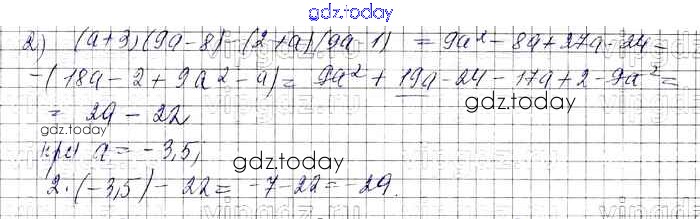 gdz.today
2) (a+3)(9a-8)-(2+a)(9a-1) = 9a²-8a+27a-24-
-(18a-2+9a²-a)= 9a²+19a-24-17a+2-9a²=
gdz.today
= 2a-22
при a=-3,5,
gdz.today
2·(-3,5)-22=-7-22=-29.